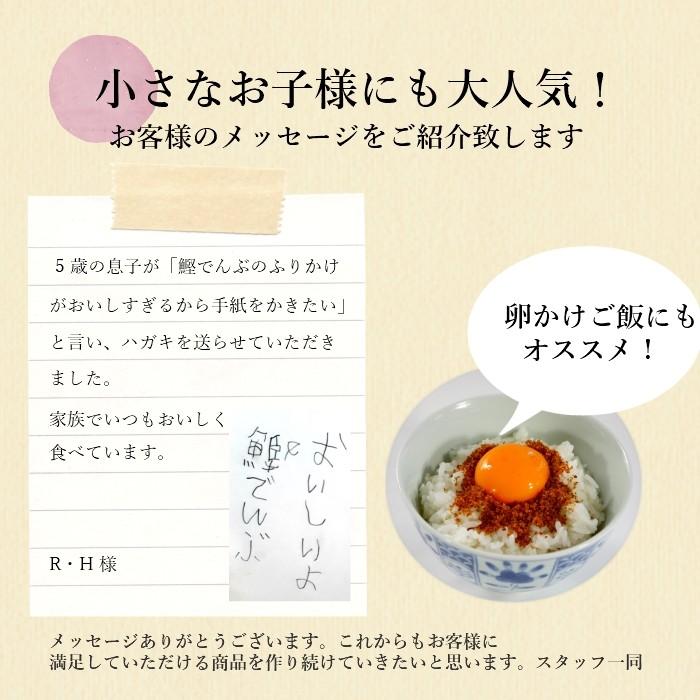 小さなお子様にも大人気！
お客様のメッセージをご紹介致します
5歳の息子が「鰹でんぶのふりかけ
がおいしすぎるから手紙をかきたい」
と言い、ハガキを送らせていただき
ました。
家族でいつもおいしく
食べています。
R・H様
おいしいよ
鰹でんぶ
卵かけご飯にも
オススメ！
メッセージありがとうございます。これからもお客様に
満足していただける商品を作り続けていきたいと思います。スタッフ一同